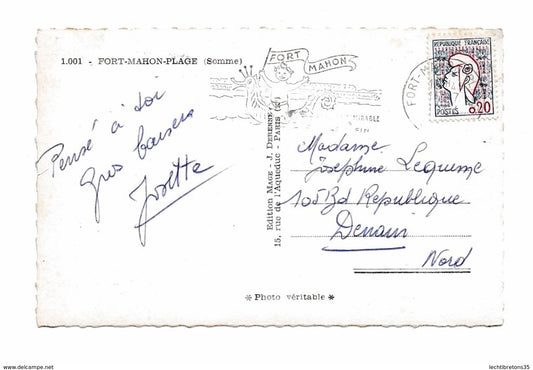 1.001 - FORT-MAHON-PLAGE (Somme)
FORT
MAHON
FORT-M
REPUBLIQUE FRANÇAISE
POSTES 0,20
Pensé à toi
Gros baisers
Josette
Edition Mage - J. DERENNE
15, rue de l'Aqueduc - PARIS
Madame
Josephine Lequime
105 Bd Republique
Denain
Nord
* Photo véritable *
www.delcampe.net
lechtibretons35